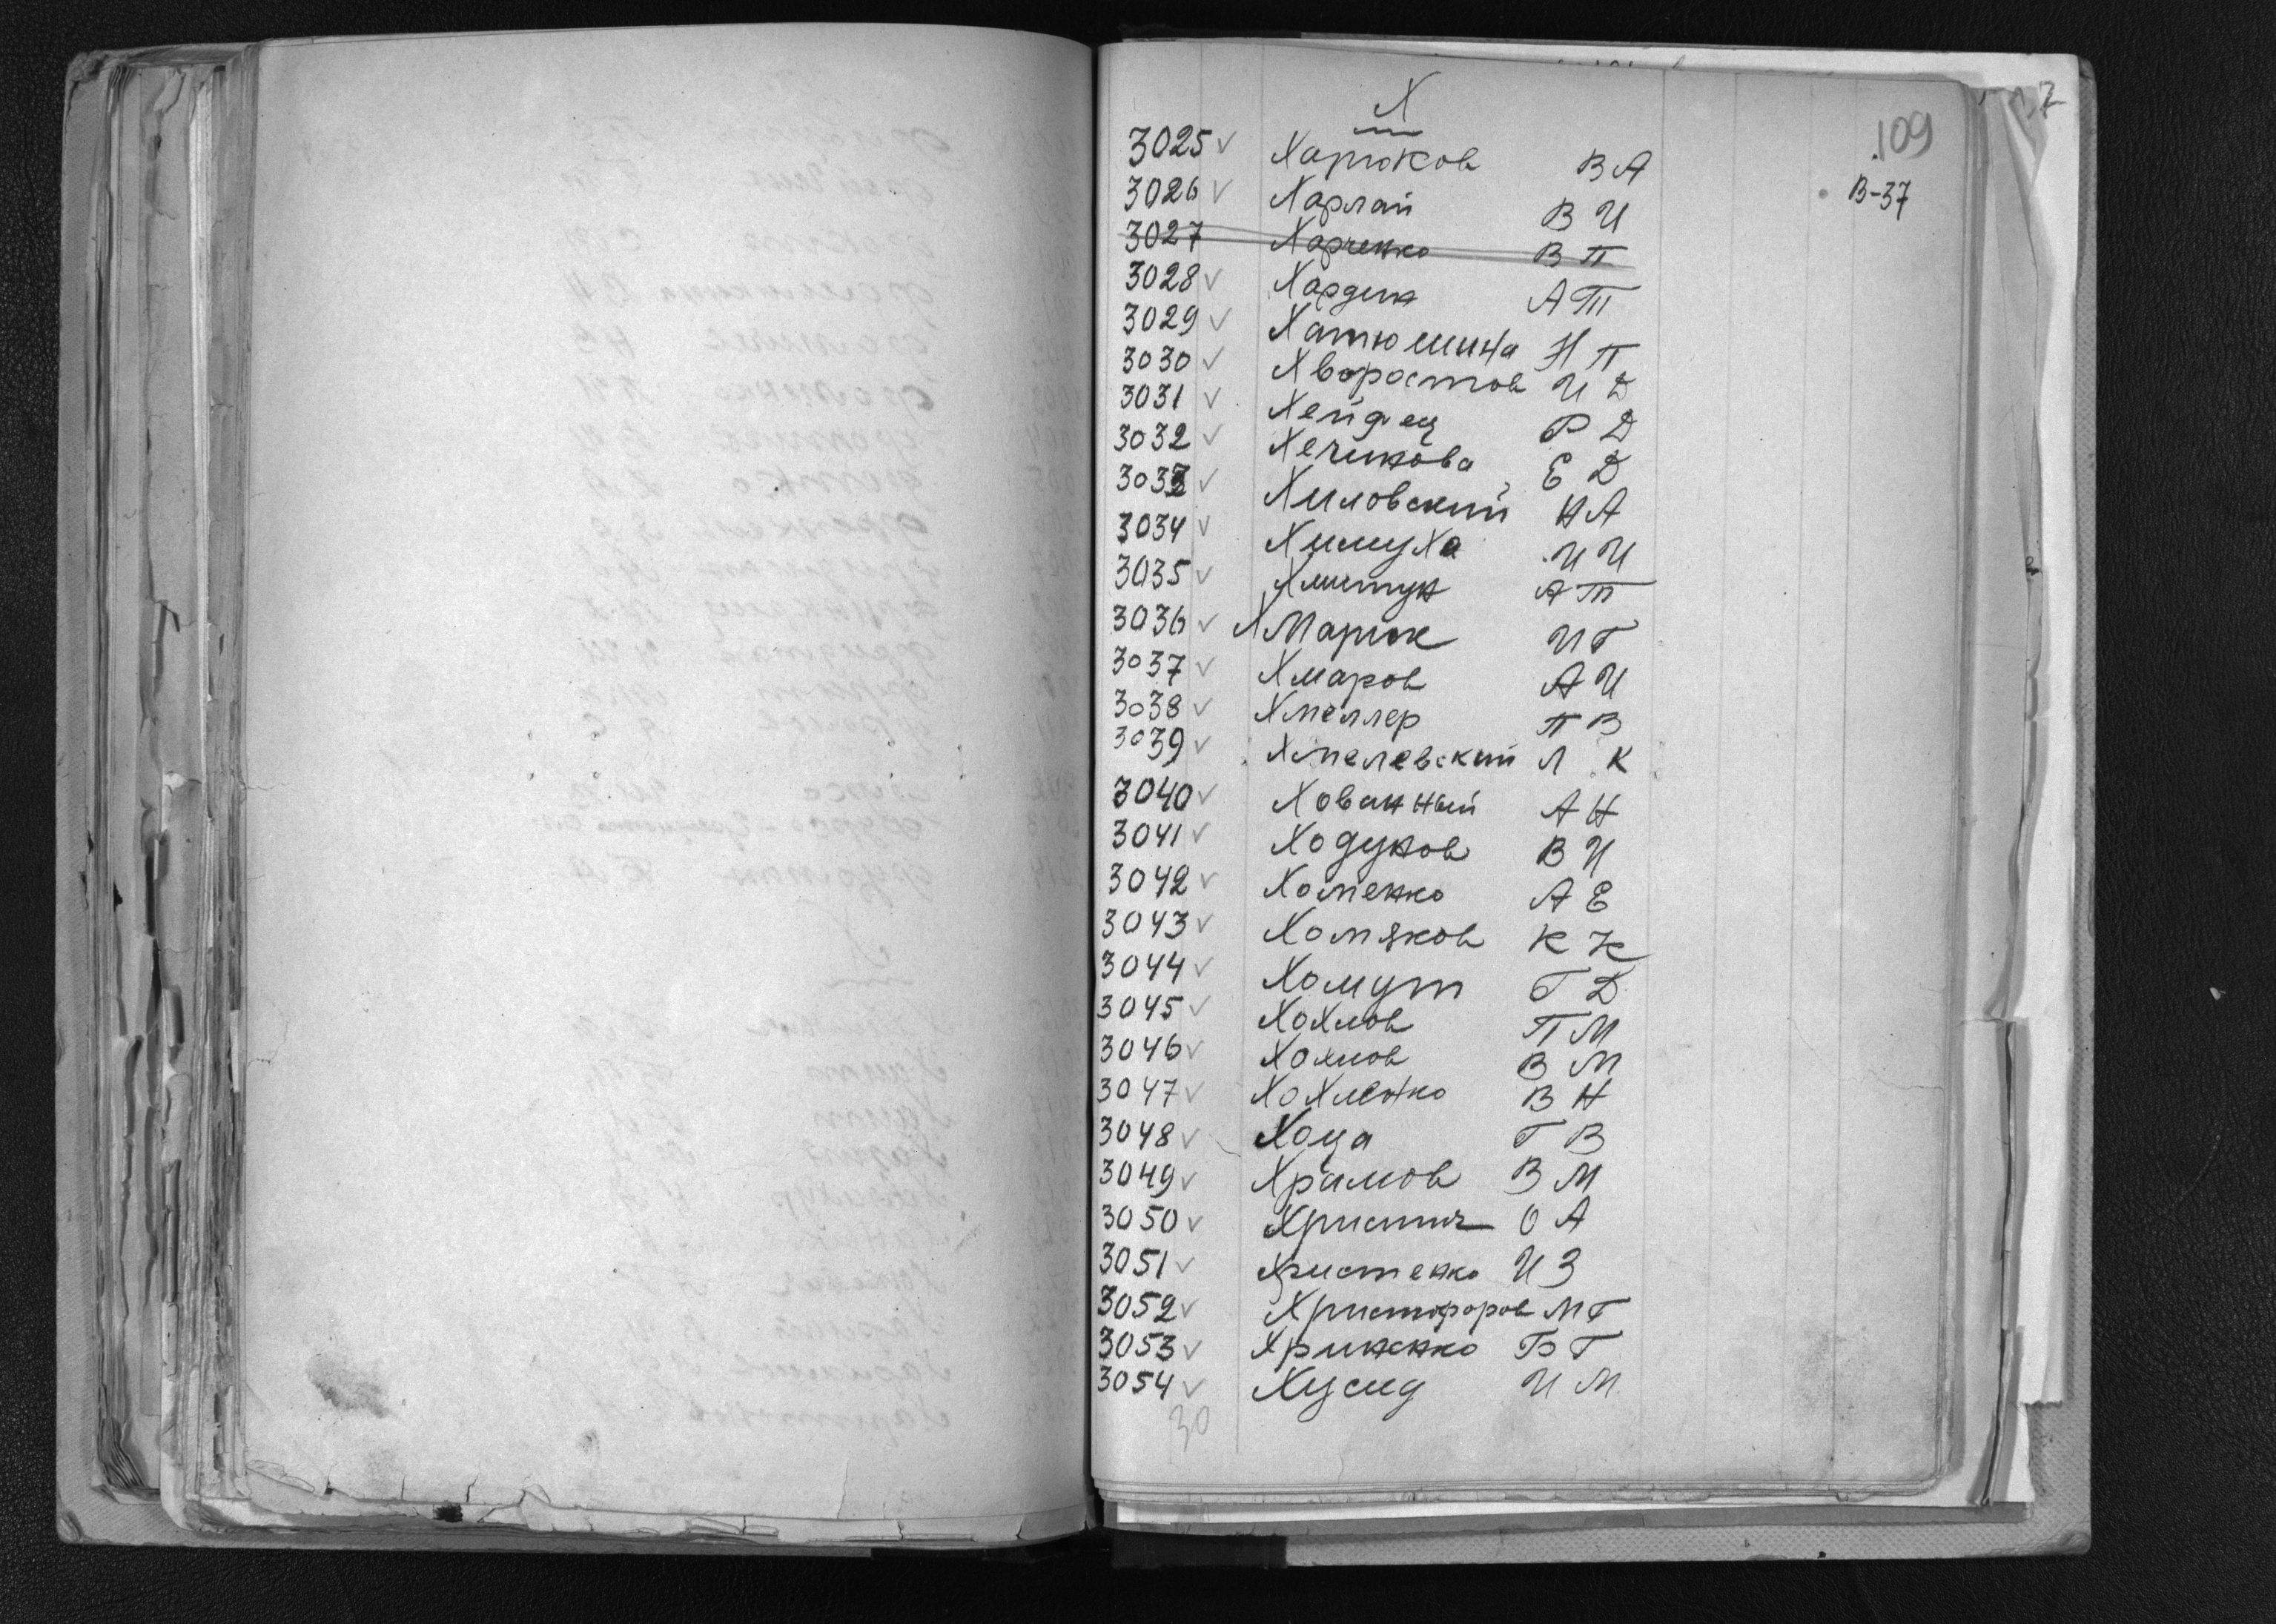 Х
109
3025 ✓ Харюков В А
В-37
3026 ✓ Харлай В И
3027 Харченко В П
3028 ✓ Хардин А Т
3029 ✓ Хатюшина Н П
3030 ✓ Хворостов И Д
3031 ✓ Хейфец Р Д
3032 ✓ Хечинова Е Д
3033 ✓ Хиловский Н А
3034 ✓ Химуха И И
3035 ✓ Хлистун А Т
3036 ✓ ХМарик И Г
3037 ✓ Хмаров А И
3038 ✓ Хмеллер П В
3039 ✓ Хмелевский Л К
3040 ✓ Хованный А Н
3041 ✓ Ходунов В И
3042 ✓ Хоменко А Е
3043 ✓ Хомяков К К
3044 ✓ Хомут Г Д
3045 ✓ Хохлов П М
3046 ✓ Хохлов В М
3047 ✓ Хохленко В Н
3048 ✓ Хоца Г В
3049 ✓ Храмов В М
3050 ✓ Христич О А
3051 ✓ Христенко И З
3052 ✓ Христофоров М Г
3053 ✓ Б Г
3054 ✓ Хусид И М
30